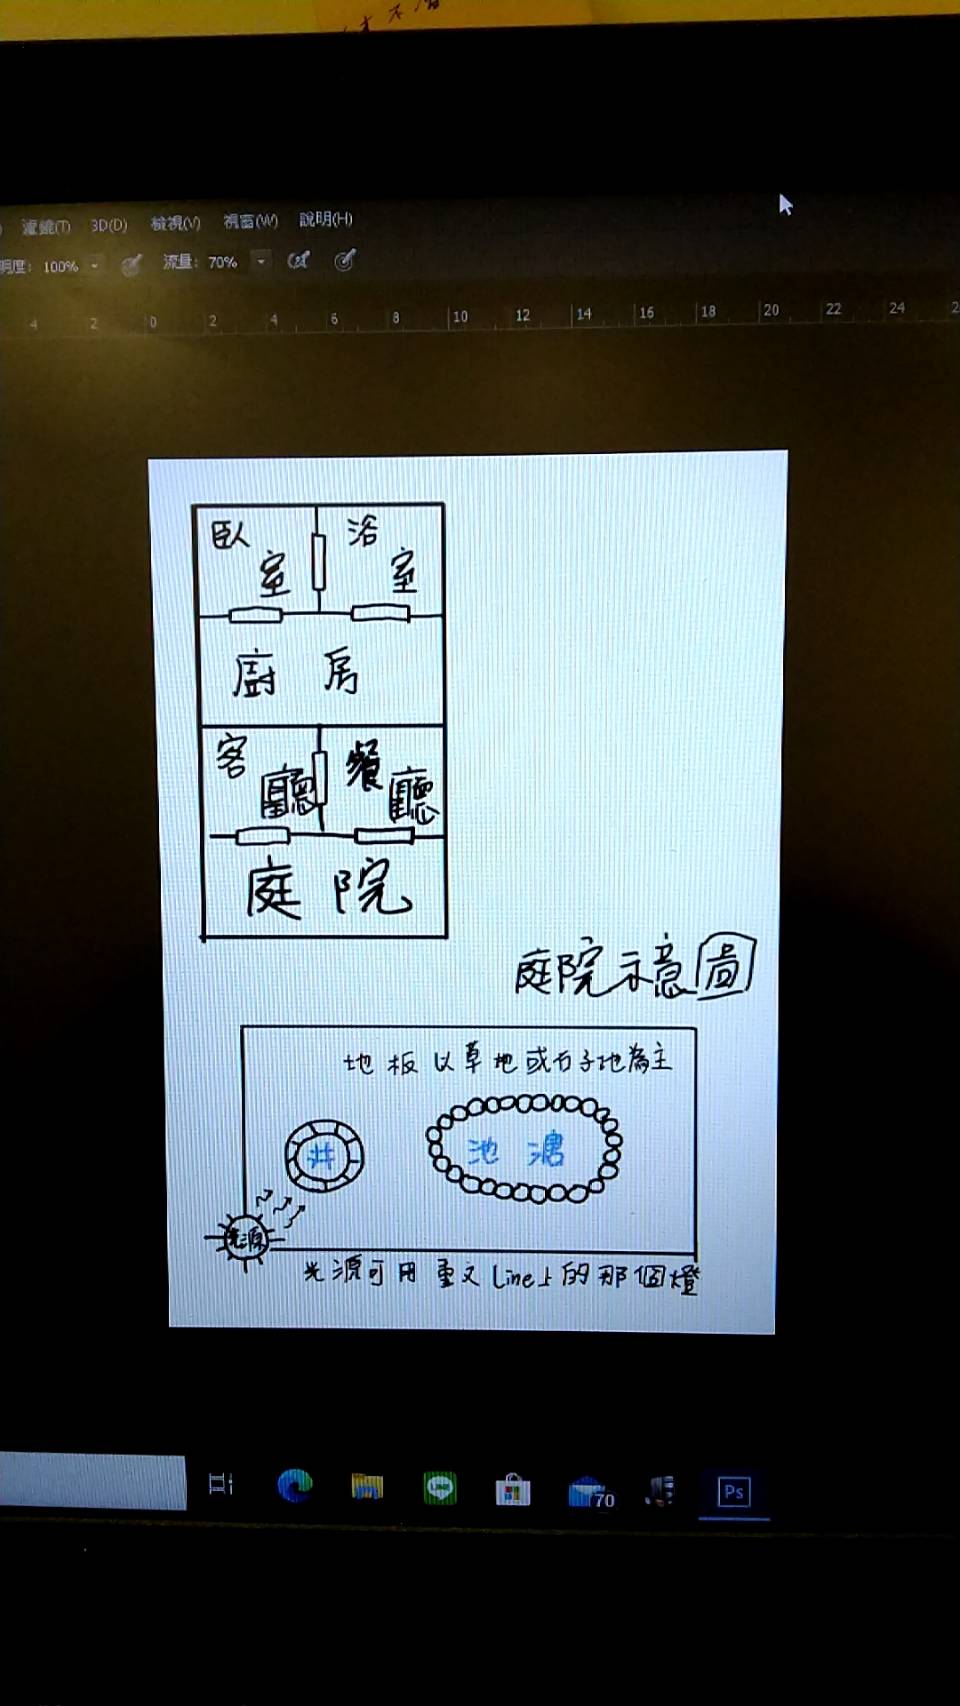 濾鏡(T) 3D(D) 檢視(V) 視窗(W) 說明(H)
明度: 100% 流量: 70%
4 2 0 2 4 6 8 10 12 14 16 18 20 22 24 2
臥室 浴室
廚房
客廳 餐廳
庭院
庭院示意圖
地板以草地或石子地為主
井 池溏
光源
光源可用 Line上的那個燈
LINE 70 Ps